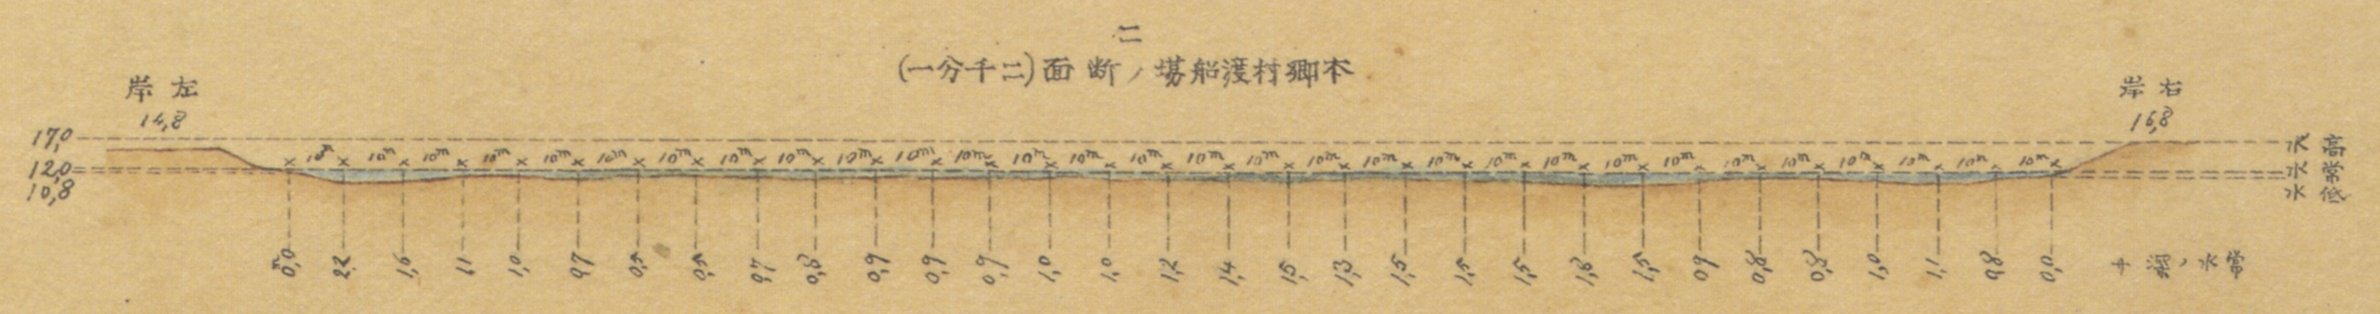 二
本郷村渡船場ノ断面(二千分一)
左岸
14,8
右岸
16,8
17,0
12,0
10,8
高水
常水
低水
10m 10m 10m 10m 10m 10m 10m 10m 10m 10m 10m 10m 10m 10m 10m 10m 10m 10m 10m 10m 10m 10m 10m 10m 10m 10m 10m 10m 10m 10m
0,0m 2,2 1,6 1,1 1,0 0,7 0,5 0,5 0,7 0,8 0,9 0,9 0,9 1,0 1,0 1,2 1,4 1,5 1,3 1,5 1,5 1,5 1,8 1,5 0,9 0,8 0,8 1,0 1,1 0,8 0,0
常水ノ深サ